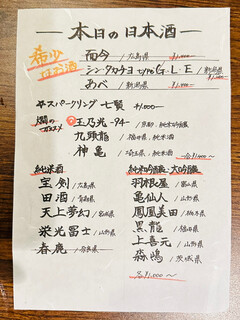 本日の日本酒
希少日本酒
而今 /広島県 ¥1,000
シン・タカチヨ type G.L.E /新潟県 ¥1,000
あべ /新潟県 ¥1,000
☆スパークリング 七賢 ¥1,000
燗のオススメ
玉乃光-94- /京都 純米吟醸
九頭龍 /福井県, 純米酒
神亀 /埼玉県, 純米酒
各¥1,000〜
純米酒
宝剣 /広島県
田酒 /青森県
天上夢幻 /宮城県
栄光冨士 /山形県
春鹿 /奈良県
純米吟醸・大吟醸
羽根屋 /富山県
亀仙人 /山形県
鳳凰美田 /栃木県
黒龍 /福井県
上喜元 /山形県
森嶋 /茨城県
各¥1,000〜